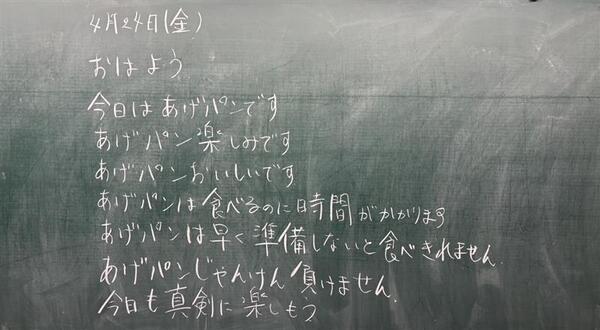 4月24日(金)
おはよう
今日はあげパンです
あげパン楽しみです
あげパンおいしいです
あげパンは食べるのに時間がかかります
あげパンは早く準備しないと食べきれません.
あげパンじゃんけん負けません.
今日も真剣に楽しもう